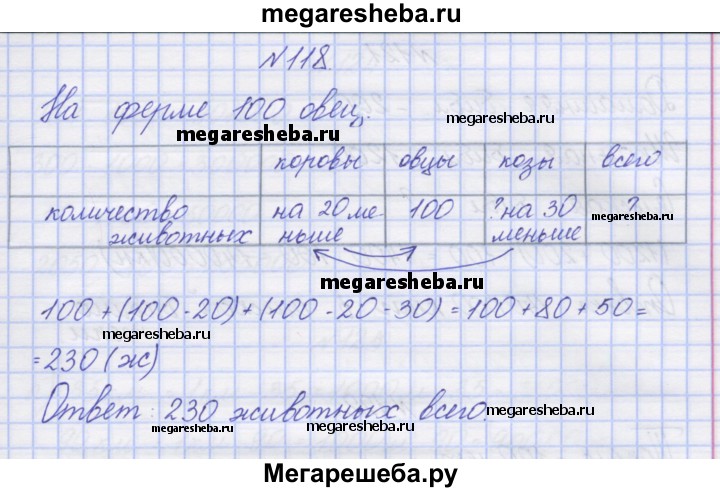 megaresheba.ru
№118.
На ферме 100 овец.
megaresheba.ru
megaresheba.ru
коровы овцы козы всего
количество животных на 20 меньше 100 ? на 30 меньше ?
megaresheba.ru
megaresheba.ru
100 + (100 - 20) + (100 - 20 - 30) = 100 + 80 + 50 =
megaresheba.ru
= 230 (ж)
Ответ: 230 животных всего.
megaresheba.ru
megaresheba.ru
megaresheba.ru
Мегарешеба.ру